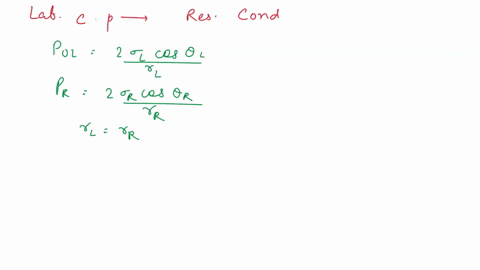 Lab. C. p → Res. Cond
P_OL = 2 σ_L cos θ_L / r_L
P_R = 2 σ_R cos θ_R / r_R
r_L = r_R